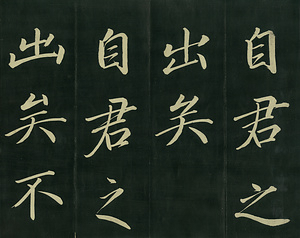 自君之
出矣
自君之
出矣不